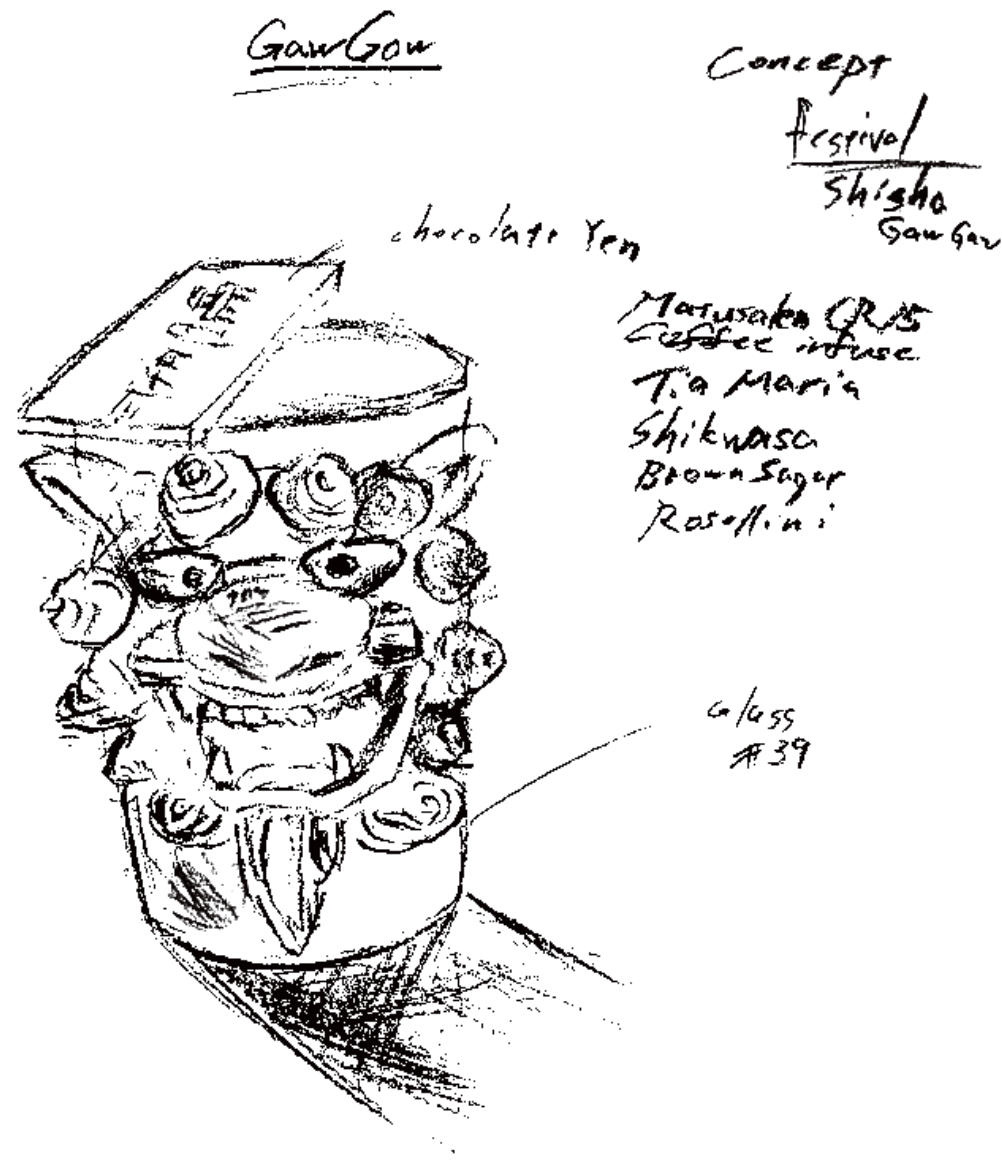 GawGow
Concept
Festival
Shisha
Gaw Gaw
chocolate Yen
Matusalem GR15
Coffee infuse
Tia Maria
Shikuwasa
Brown Sugar
glass
#39